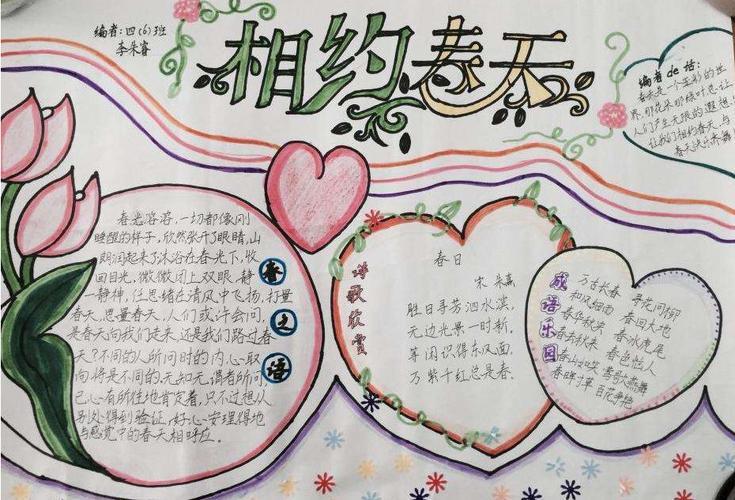 编者:四(6)班
李朱睿
相约春天
编者de话:
春天是一个五彩的世
界,那花朵那绿叶总让
人们产生无限的遐想,
让我们相约春天,与
春天快乐齐舞!
春光溶溶,一切都像刚
睡醒的样子,欣然张开了眼睛,山
朗润起来了沐浴在春光下,收
回目光,微微闭上双眼,静
一静神,任思绪在清风中飞扬,打量
春天,思量春天,人们或许会问,
是春天向我们走来,还是我们路过春
天?不同的人所问时的内心取
向,将是不同的,无知无谓者所问
己心有所住地肯定着,只不过想从
别处得到验证,好心安理得地
与感觉中的春天相呼应。
春之语
诗歌欣赏
春日
宋 朱熹
胜日寻芳泗水滨,
无边光景一时新,
等闲识得东风面,
万紫千红总是春.
成语乐园
万古长春 寻花问柳
和风细雨 春回大地
春华秋实 春冰虎尾
春去秋来 春色恼人
春山如笑 莺歌燕舞
春晖寸草 百花争艳